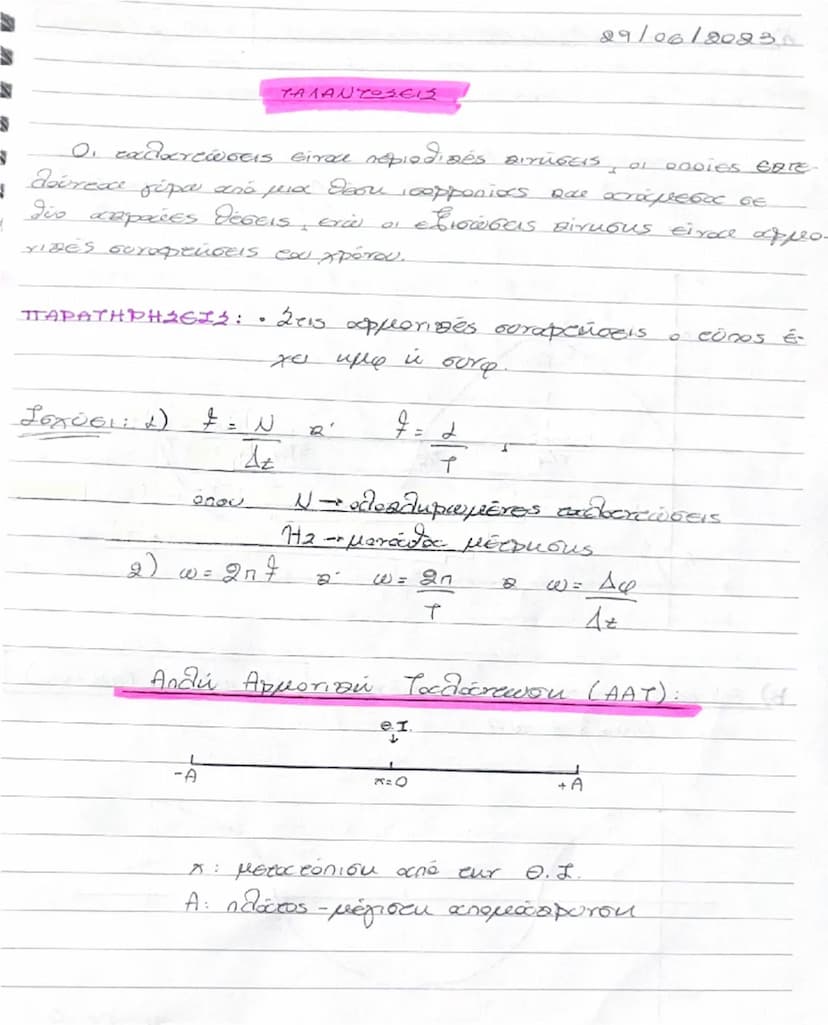 29/06/2023
ΤΑΛΑΝΤΩΣΕΙΣ
Οι ταλαντώσεις είναι περιοδικές κινήσεις, οι οποίες εκτε-
λούνται γύρω από μια θέση ισορροπίας και ανάμεσα σε
δύο ακραίες θέσεις, ενώ οι εξισώσεις κίνησης είναι αρμο-
νικές συναρτήσεις του χρόνου.
ΠΑΡΑΤΗΡΗΣΕΙΣ: • Στις αρμονικές συναρτήσεις ο τύπος έ-
χει ημφ ή συνφ.
Ισχύει: 1) f = N/Δt κ' f = 1/T ,
όπου N → ολοκληρωμένες ταλαντώσεις
Hz → μονάδα μέτρησης
2) ω = 2πf κ' ω = 2π/T κ ω = Δφ/Δt
Απλή Αρμονική Ταλάντωση (ΑΑΤ):
Θ.Ι.
↓
-A x=0 +A
x: μετατόπιση από την Θ.Ι.
A: πλάτος - μέγιστη απομάκρυνση